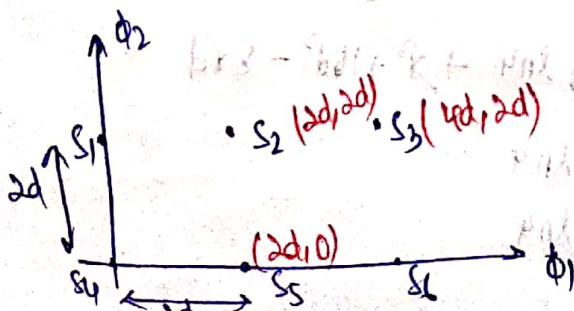 ϕ2
S1 S2 (2d,2d) S3 (4d,2d)
2d
(2d,0)
S4 S5 S6 ϕ1